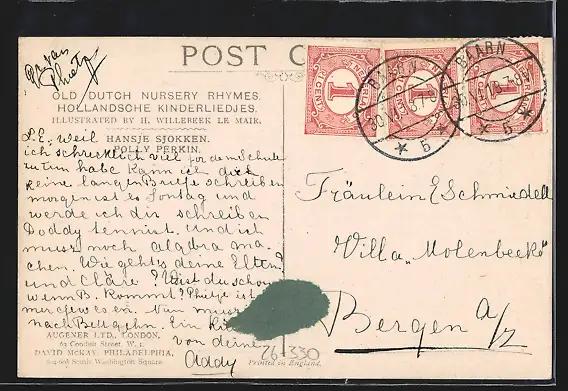 POST C
OLD DUTCH NURSERY RHYMES.
HOLLANDSCHE KINDERLIEDJES.
ILLUSTRATED BY H. WILLEBEEK LE MAIR.
HANSJE SJOKKEN.
POLLY PERKIN.
L.E. weil
ich schrecklich viel for dem Schule
zu tun habe kann ich dir
keine langen Briefe schreiben
morgen ist es Sontag und
werde ich dir schreiben
Daddy tennist. und ich
muss noch algebra ma-
chen. Wie geht's deine Eltern
und Cläre? Weist du schon
wenn B. kommt?
Nun muss
nach Bett gehn. Ein
von deine
Addy
AUGENER LTD., LONDON,
63 Conduit Street, W. 1.
DAVID McKAY, PHILADELPHIA,
604-608 South Washington Square.
Printed in England.
26-330
1 CENT
1 CENT
1 CENT
BAARN
5
BAARN
5
Fräulein E Schmiedell
Villa „Molenbeek"
Bergen a/z